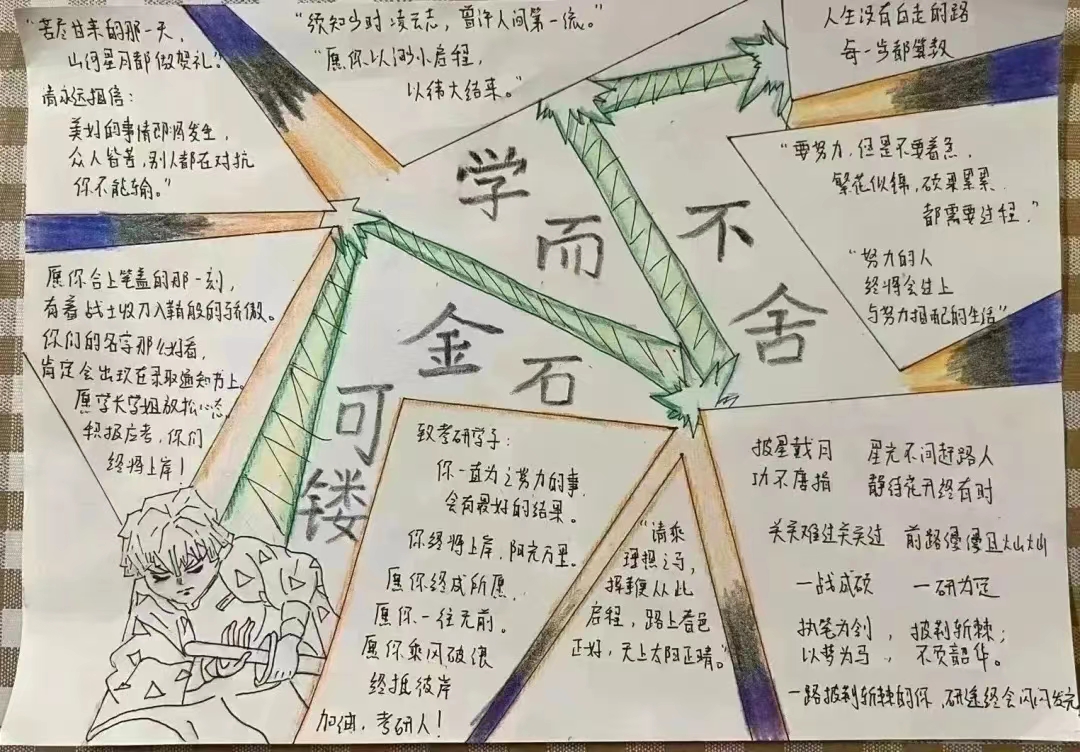 “苦尽甘来的那一天，
山河星月都做贺礼！
请永远相信：
美好的事情即将发生，
众人皆苦，别人都在对抗
你不能输。”
“须知少时凌云志，曾许人间第一流。”
“愿你以渺小启程，
以伟大结束。”
人生没有白走的路
每一步都算数
“要努力，但是不要着急，
繁花似锦，硕果累累
都需要过程。”
“努力的人
终将会过上
与努力相匹配的生活”
学而不舍
金石可镂
愿你合上笔盖的那一刻，
有着战士收刀入鞘般的骄傲。
你们的名字那么好看，
肯定会出现在录取通知书上。
愿学长学姐放松心态，
积极应考，你们
终将上岸！
致考研学子：
你一直为之努力的事，
会有最好的结果。
你终将上岸，阳光万里。
愿你终成所愿，
愿你一往无前。
愿你乘风破浪
终抵彼岸
加油，考研人！
“请乘
理想之马，
挥鞭从此
启程，路上春色
正好，天上太阳正晴。”
披星戴月 星光不问赶路人
功不唐捐 静待花开终有时
关关难过关关过 前路漫漫且灿灿
一战成硕 一研为定
执笔为剑，披荆斩棘；
以梦为马，不负韶华。
一路披荆斩棘的你，研途终会闪闪发光